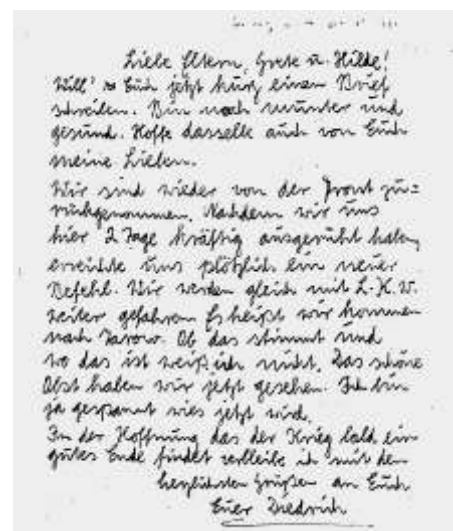 Liebe Eltern, Grete u. Hilde!
Will' Euch jetzt kurz einen Brief
schreiben. Bin noch munter und
gesund. Hoffe dasselbe auch von Euch
meine Lieben.
Wir sind wieder von der Front zu=
rückgenommen. Nachdem wir uns
hier 2 Tage kräftig ausgeruht haben,
erreichte uns plötzlich ein neuer
Befehl. Wir werden gleich mit L.K.W.
weiter gefahren. Es heißt wir kommen
nach Jarow. Ob das stimmt und
wo das ist weiß ich nicht. Das schöne
Obst haben wir jetzt gesehen. Ich bin
ja gespannt wies jetzt wird.
In der Hoffnung das der Krieg bald ein
gutes Ende findet verbleibe ich mit den
herzlichsten Grüßen an Euch
Euer Diedrich